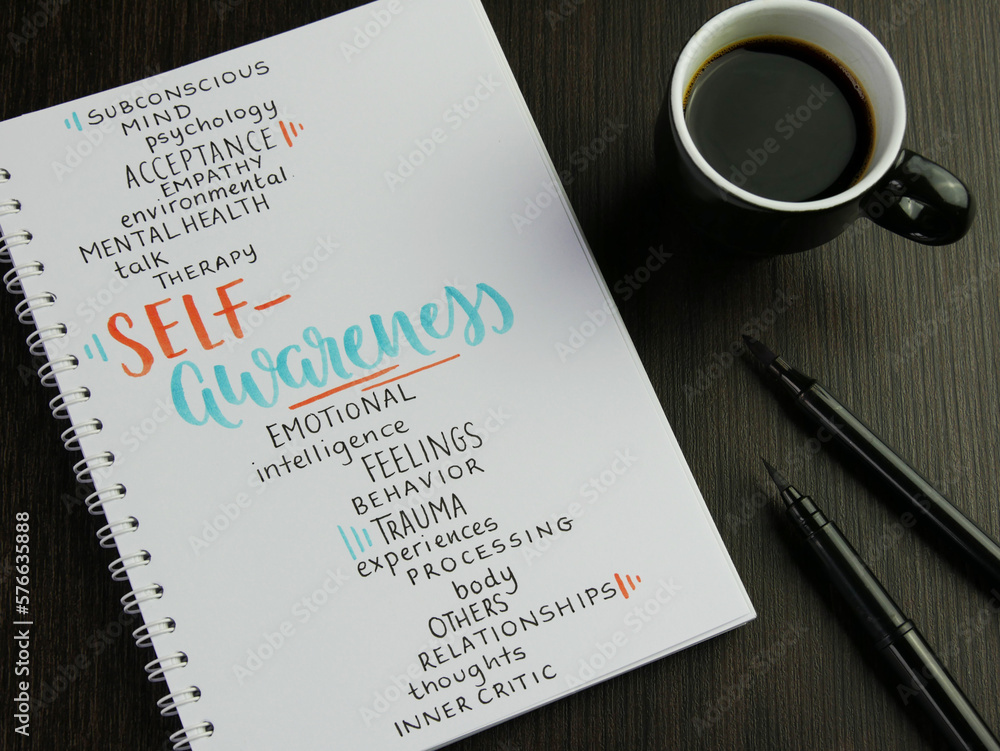 SUBCONSCIOUS
MIND
psychology
ACCEPTANCE
EMPATHY
environmental
MENTAL HEALTH
talk
THERAPY
SELF-
awareness
EMOTIONAL
intelligence
FEELINGS
BEHAVIOR
TRAUMA
experiences
PROCESSING
body
OTHERS
RELATIONSHIPS
thoughts
INNER CRITIC
Adobe Stock | #576635888